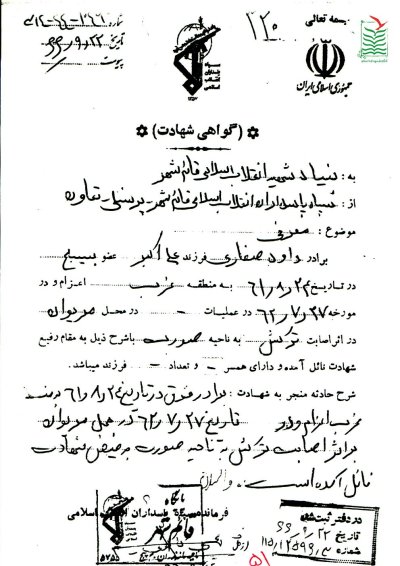 بسمه تعالی
۱۲۰
شماره
تاریخ ۶۶/۹/۲۲
پیوست
جمهوری اسلامی ایران
(گواهی شهادت)
به: بنیاد شهید انقلاب اسلامی قائم‌شهر
از: سپاه پاسداران انقلاب اسلامی قائم‌شهر-پرسنلی-تعاون
موضوع: معرفی
برادر داود صفاری فرزند علی اکبر عضو بسیج
در تاریخ ۶۱/۸/۲۴ به منطقه غرب اعزام و در
مورخه ۶۲/۷/۲۷ در عملیات - در محل مریوان
در اثر اصابت ترکش به ناحیه صورت باشرح ذیل به مقام رفیع
شهادت نائل آمده و دارای همسر - و تعداد - فرزند میباشد.
شرح حادثه منجر به شهادت: برادر فوق در تاریخ ۶۱/۸/۲۴ به
غرب اعزام و در تاریخ ۶۲/۷/۲۷ در محل مریوان
بر اثر اصابت ترکش به ناحیه صورت به فیض شهادت
نائل آمده است. والسلام
فرمانده سپاه پاسداران انقلاب اسلامی
پایگاه
قائم شهر
در دفتر ثبت شد
تاریخ ۶۶/۹/۲۲
شماره
۵۱